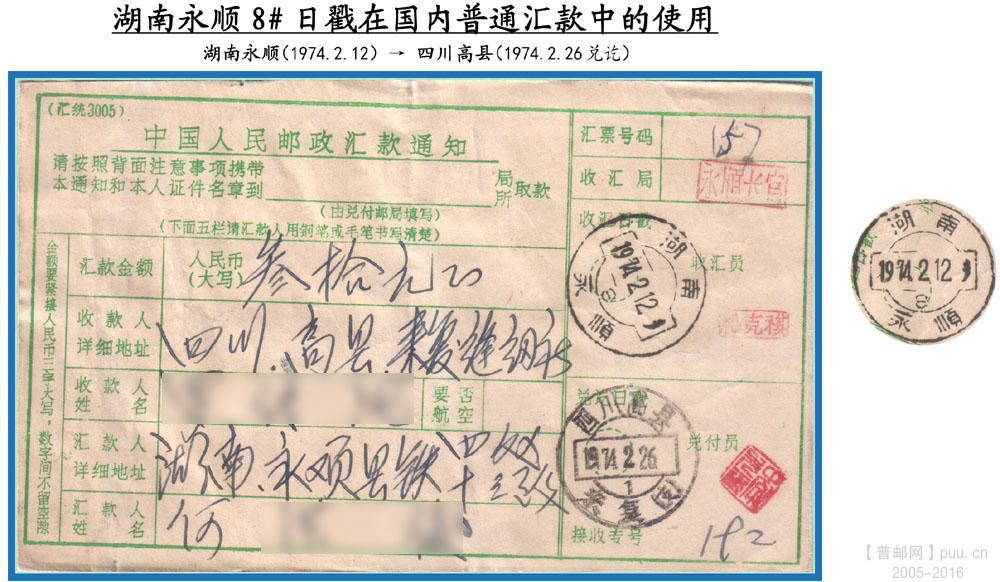 湖南永顺8#日戳在国内普通汇款中的使用
湖南永顺(1974.2.12) → 四川高县(1974.2.26兑讫)
(汇统3005)
中国人民邮政汇款通知
请按照背面注意事项携带
本通知和本人证件名章到 局所 取款
(由兑付邮局填写)
(下面五栏请汇款人用钢笔或毛笔书写清楚)
金额要紧接人民币三字大写,数字间不留空隙
汇款金额 人民币(大写) 叁拾元正
收款人详细地址 四川.高县.来复缝纫社
收款人姓名
要否航空
汇款人详细地址 湖南.永顺县铁四处十三段
汇款人姓名 何
汇票号码 157
收汇局 永顺长官
收汇日戳
湖南
1974.2.12
8
永顺
收汇员
克禄
兑付日戳
四川高县
1974.2.26
1
来复(支)
兑付员
接收专号 192
湖南
1974.2.12
8
永顺
【普邮网】puu.cn
2005-2016